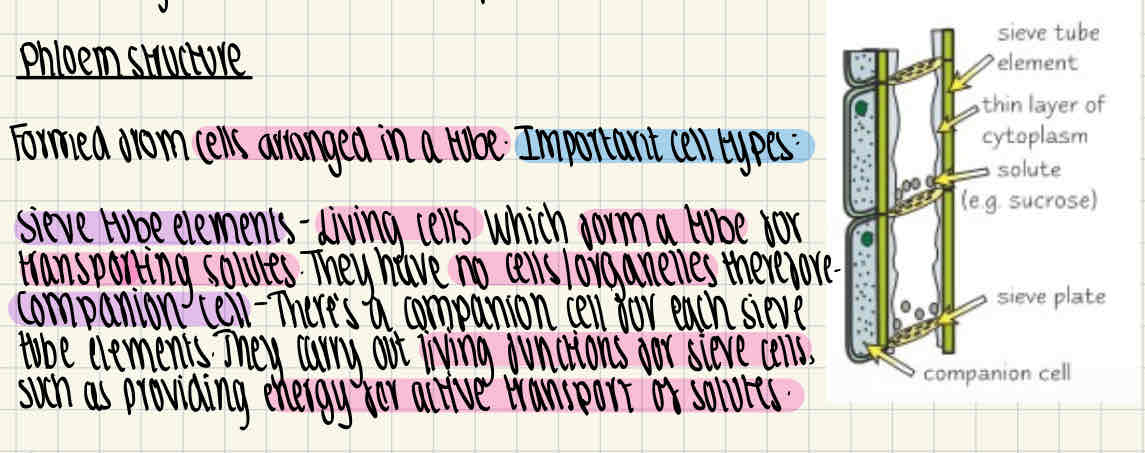 Phloem structure
Formed from cells arranged in a tube. Important cell types:
Sieve tube elements - Living cells which form a tube for
transporting solutes. They have no cells/organelles therefore-
Companion cell - There's a companion cell for each sieve
tube elements. They carry out living functions for sieve cells,
such as providing energy for active transport of solutes.
sieve tube
element
thin layer of
cytoplasm
solute
(e.g. sucrose)
sieve plate
companion cell